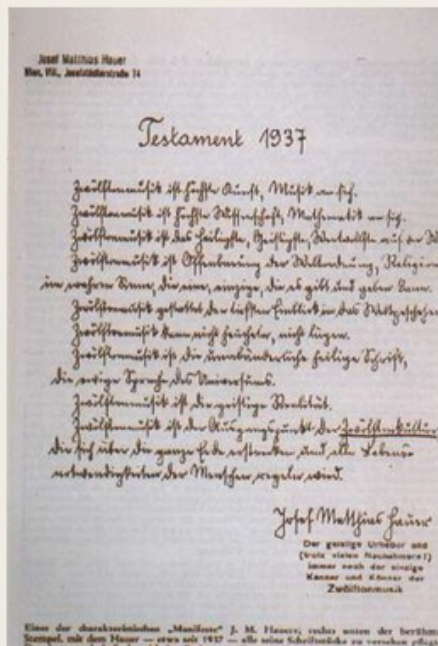 Josef Matthias Hauer
Wien, VIII., Josefstädterstraße 74
Testament 1937
Zwölftonmusik ist höchste Kunst, Musik an sich.
Zwölftonmusik ist höchste Wissenschaft, Mathematik an sich.
Zwölftonmusik ist das Heiligste, Geistigste, Wertvollste auf der
Zwölftonmusik ist Offenbarung der Weltordnung, Religion
im wahren Sinn, die eine, einzige, die es gibt und geben kann.
Zwölftonmusik gestattet den tiefsten Einblick in das Weltgeschehen
Zwölftonmusik kann nicht heucheln, nicht lügen.
Zwölftonmusik ist die unabänderliche heilige Schrift,
die ewige Sprache des Universums.
Zwölftonmusik ist die geistige Realität.
Zwölftonmusik ist der Ausgangspunkt der Zwölftonkultur
die sich über die ganze Erde erstrecken und alle Lebens-
notwendigkeiten der Menschen regeln wird.
Josef Matthias Hauer
Der geistige Urheber und
(trotz vielen Nachahmern!)
immer noch der einzige
Kenner und Könner der
Zwölftonmusik
Eines der charakteristischen „Manifeste“ J. M. Hauers; rechts unten der berühmte
Stempel, mit dem Hauer — etwa seit 1937 — alle seine Schriftstücke zu versehen pflegte